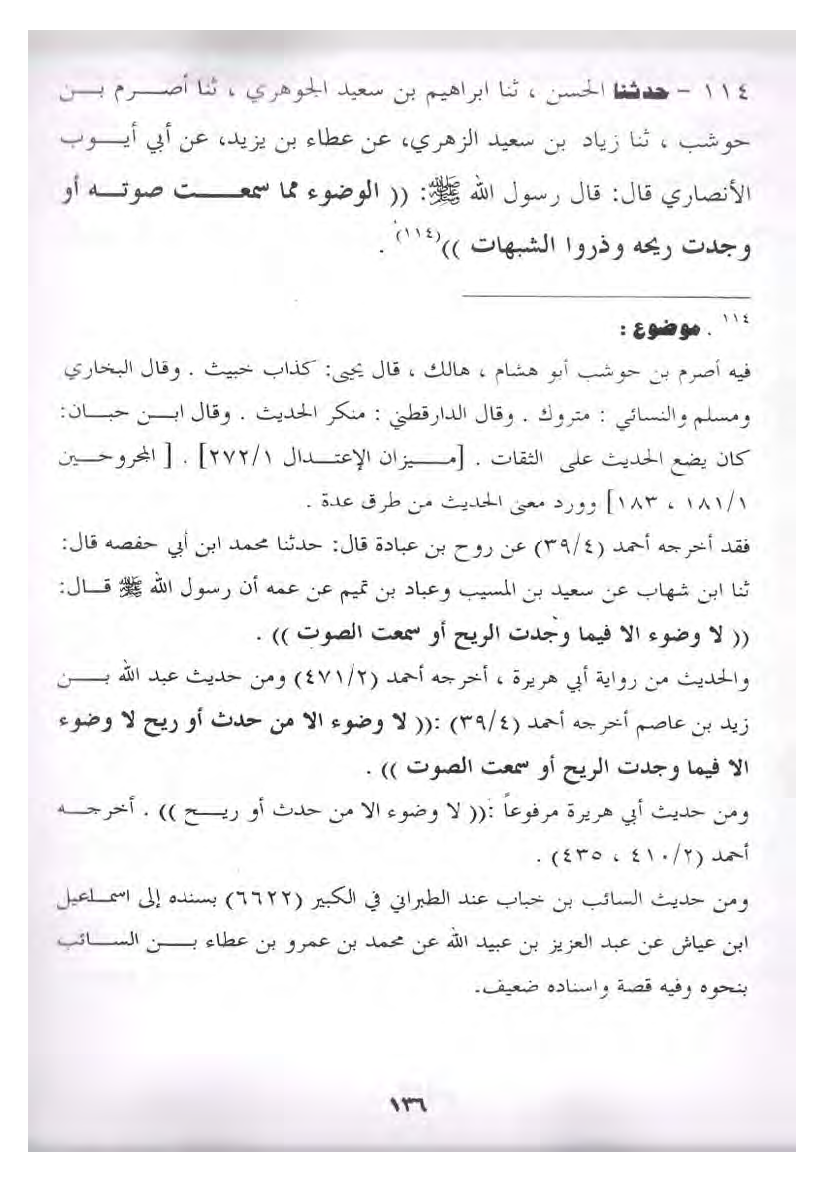 ١١٤ - حدثنا الحسن ، ثنا ابراهيم بن سعيد الجوهري ، ثنا أصـــرم بــن
حوشب ، ثنا زياد بن سعيد الزهري، عن عطاء بن يزيد، عن أبي أيـــوب
الأنصاري قال: قال رسول الله ﷺ: (( الوضوء مما سمعـــــت صوتـــه أو
وجدت ريحه وذروا الشبهات ))(١١٤) .
١١٤ . موضوع :
فيه أصرم بن حوشب أبو هشام ، هالك ، قال يحيى: كذاب خبيث . وقال البخاري
ومسلم والنسائي : متروك . وقال الدارقطني : منكر الحديث . وقال ابــن حبــان:
كان يضع الحديث على الثقات . [مـــيزان الإعتـــدال ٢٧٢/١] . [ المجروحـــين
١٨١/١ ، ١٨٣] وورد معنى الحديث من طرق عدة .
فقد أخرجه أحمد (٣٩/٤) عن روح بن عبادة قال: حدثنا محمد ابن أبي حفصه قال:
ثنا ابن شهاب عن سعيد بن المسيب وعباد بن تميم عن عمه أن رسول الله ﷺ قــال:
(( لا وضوء الا فيما وجدت الريح أو سمعت الصوت )) .
والحديث من رواية أبي هريرة ، أخرجه أحمد (٤٧١/٢) ومن حديث عبد الله بـــن
زيد بن عاصم أخرجه أحمد (٣٩/٤) :(( لا وضوء الا من حدث أو ريح لا وضوء
الا فيما وجدت الريح أو سمعت الصوت )) .
ومن حديث أبي هريرة مرفوعاً :(( لا وضوء الا من حدث أو ريـــح )) . أخرجـــه
أحمد (٤١٠/٢ ، ٤٣٥) .
ومن حديث السائب بن خباب عند الطبراني في الكبير (٦٦٢٢) بسنده إلى اسمـاعيل
ابن عياش عن عبد العزيز بن عبيد الله عن محمد بن عمرو بن عطاء بـــن الســـائب
بنحوه وفيه قصة واسناده ضعيف.
١٣٦